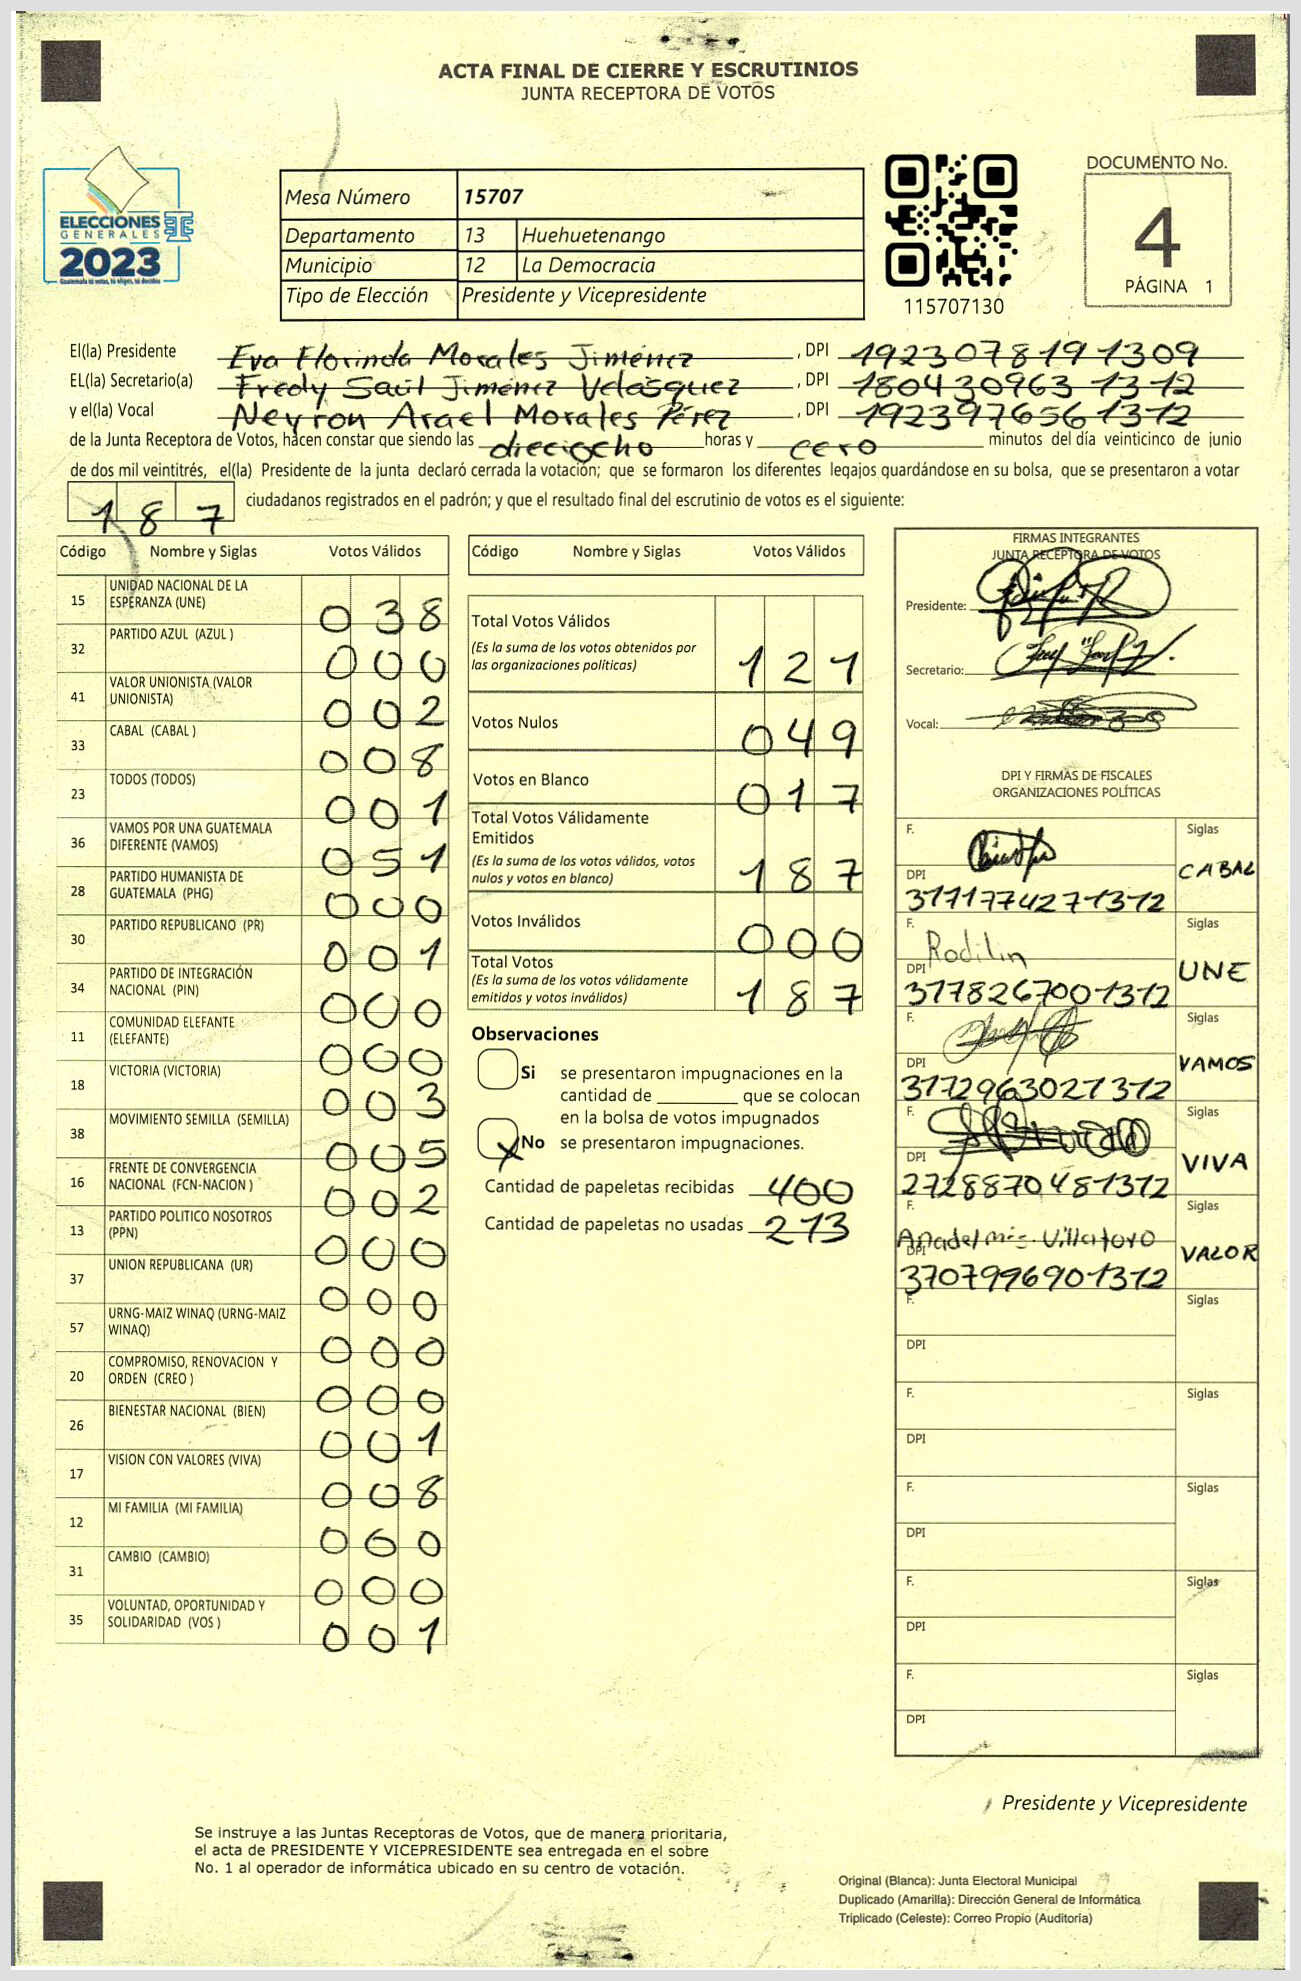 ACTA FINAL DE CIERRE Y ESCRUTINIOS
JUNTA RECEPTORA DE VOTOS
ELECCIONES
GENERALES
2023
Guatemala tú votas, tú eliges, tú decides
Mesa Número 15707
Departamento 13 Huehuetenango
Municipio 12 La Democracia
Tipo de Elección Presidente y Vicepresidente
115707130
DOCUMENTO No.
4
PÁGINA 1
El(la) Presidente Eva Florinda Morales Jiménez , DPI 1923078191309
EL(la) Secretario(a) Fredy Saúl Jiménez Velásquez , DPI 1804309631312
y el(la) Vocal Neyron Arael Morales Pérez , DPI 1923976561312
de la Junta Receptora de Votos, hacen constar que siendo las dieciocho horas y cero minutos del día veinticinco de junio
de dos mil veintitrés, el(la) Presidente de la junta declaró cerrada la votación; que se formaron los diferentes legajos guardándose en su bolsa, que se presentaron a votar
187 ciudadanos registrados en el padrón; y que el resultado final del escrutinio de votos es el siguiente:
Código Nombre y Siglas Votos Válidos
15 UNIDAD NACIONAL DE LA ESPERANZA (UNE) 038
32 PARTIDO AZUL (AZUL ) 000
41 VALOR UNIONISTA (VALOR UNIONISTA) 002
33 CABAL (CABAL ) 008
23 TODOS (TODOS) 001
36 VAMOS POR UNA GUATEMALA DIFERENTE (VAMOS) 051
28 PARTIDO HUMANISTA DE GUATEMALA (PHG) 000
30 PARTIDO REPUBLICANO (PR) 001
34 PARTIDO DE INTEGRACIÓN NACIONAL (PIN) 000
11 COMUNIDAD ELEFANTE (ELEFANTE) 000
18 VICTORIA (VICTORIA) 003
38 MOVIMIENTO SEMILLA (SEMILLA) 005
16 FRENTE DE CONVERGENCIA NACIONAL (FCN-NACION ) 002
13 PARTIDO POLITICO NOSOTROS (PPN) 000
37 UNION REPUBLICANA (UR) 000
57 URNG-MAIZ WINAQ (URNG-MAIZ WINAQ) 000
20 COMPROMISO, RENOVACION Y ORDEN (CREO ) 000
26 BIENESTAR NACIONAL (BIEN) 001
17 VISION CON VALORES (VIVA) 008
12 MI FAMILIA (MI FAMILIA) 000
31 CAMBIO (CAMBIO) 000
35 VOLUNTAD, OPORTUNIDAD Y SOLIDARIDAD (VOS ) 001
Código Nombre y Siglas Votos Válidos
Total Votos Válidos 121
(Es la suma de los votos obtenidos por
las organizaciones políticas)
Votos Nulos 049
Votos en Blanco 017
Total Votos Válidamente
Emitidos 187
(Es la suma de los votos válidos, votos
nulos y votos en blanco)
Votos Inválidos 000
Total Votos 187
(Es la suma de los votos válidamente
emitidos y votos inválidos)
Observaciones
Si se presentaron impugnaciones en la
cantidad de ________ que se colocan
en la bolsa de votos impugnados
X No se presentaron impugnaciones.
Cantidad de papeletas recibidas 400
Cantidad de papeletas no usadas 213
FIRMAS INTEGRANTES
JUNTA RECEPTORA DE VOTOS
Presidente:
Secretario:
Vocal:
DPI Y FIRMAS DE FISCALES
ORGANIZACIONES POLÍTICAS
F. Siglas CABAL
DPI 3171774271312
F. Rodilin Siglas UNE
DPI 3178267001312
F. Siglas VAMOS
DPI 3172963021312
F. Siglas VIVA
DPI 2728870481312
F. Villatoro Siglas VALOR
DPI 3707996901312
F. Siglas
DPI
F. Siglas
DPI
F. Siglas
DPI
F. Siglas
DPI
F. Siglas
DPI
Presidente y Vicepresidente
Se instruye a las Juntas Receptoras de Votos, que de manera prioritaria,
el acta de PRESIDENTE Y VICEPRESIDENTE sea entregada en el sobre
No. 1 al operador de informática ubicado en su centro de votación.
Original (Blanca): Junta Electoral Municipal
Duplicado (Amarilla): Dirección General de Informática
Triplicado (Celeste): Correo Propio (Auditoría)